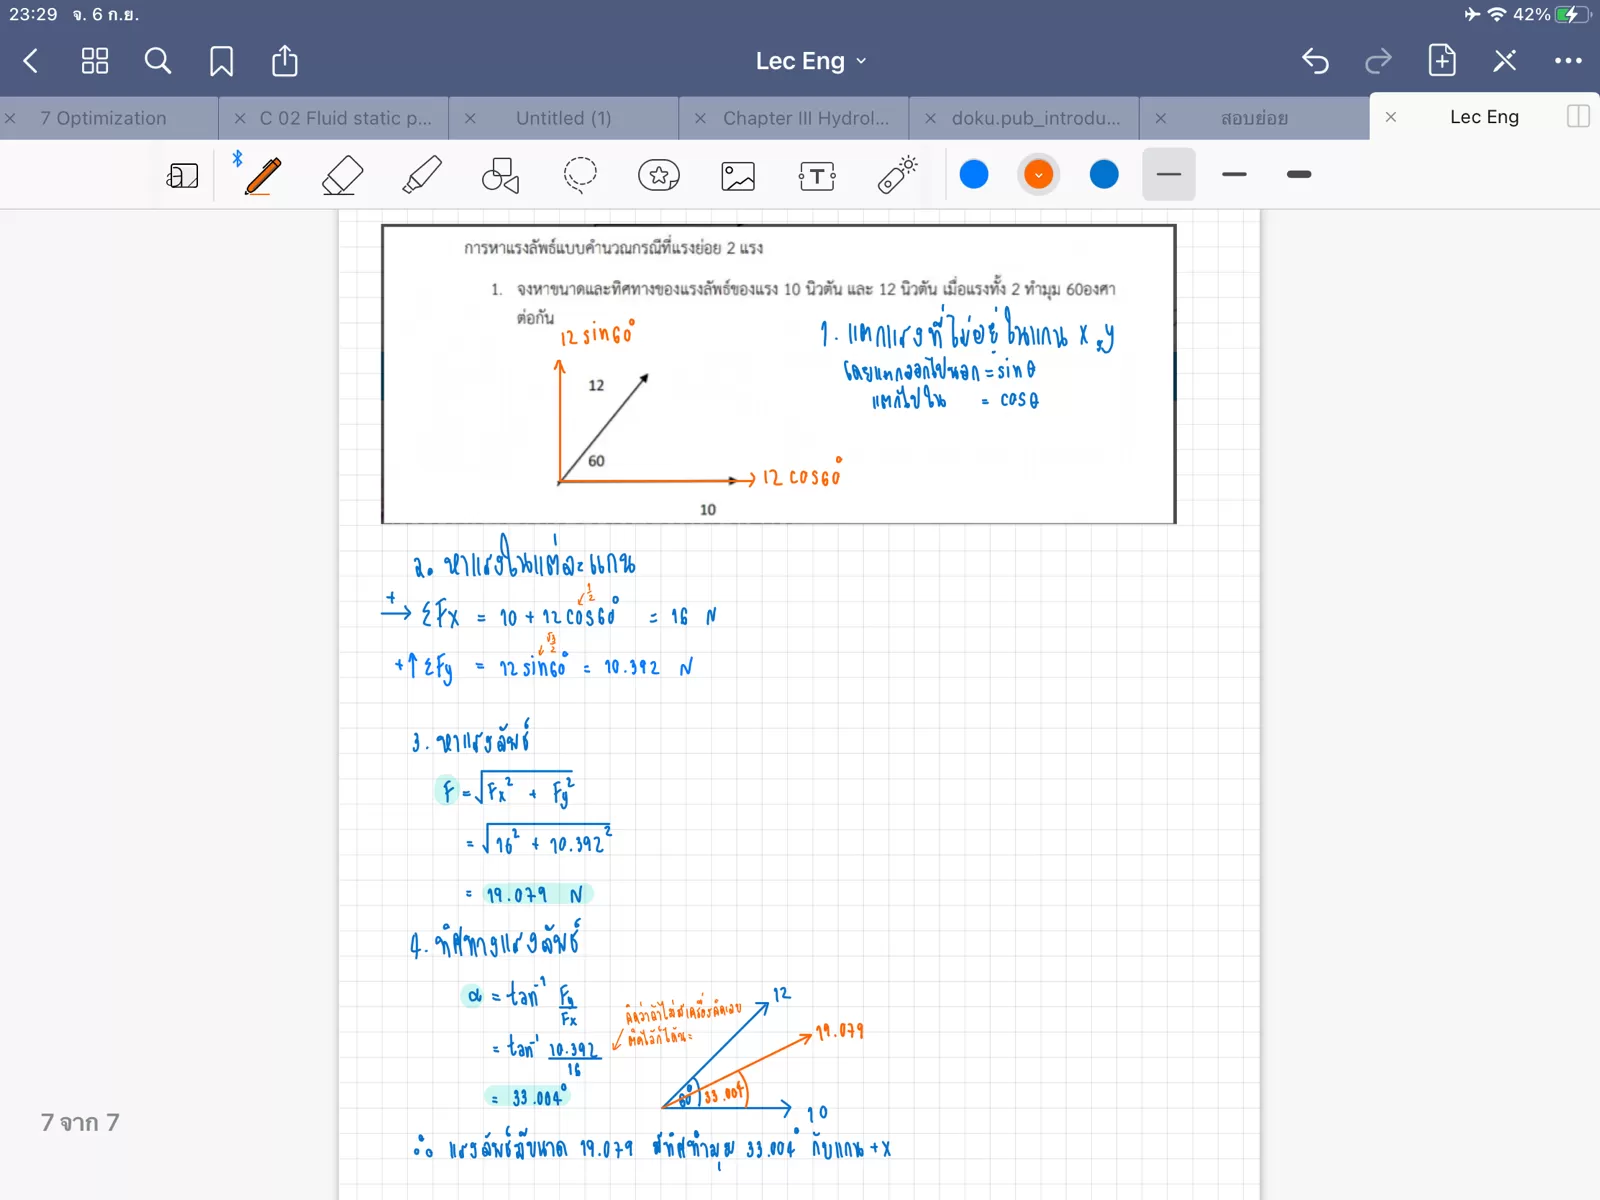 23:29 จ. 6 ก.ย.
42%
Lec Eng
7 Optimization
C 02 Fluid static p...
Untitled (1)
Chapter III Hydrol...
doku.pub_introdu...
สอบย่อย
Lec Eng
การหาแรงลัพธ์แบบคำนวณกรณีที่แรงย่อย 2 แรง
1. จงหาขนาดและทิศทางของแรงลัพธ์ของแรง 10 นิวตัน และ 12 นิวตัน เมื่อแรงทั้ง 2 ทำมุม 60องศา
ต่อกัน
12 sin60°
12
60
12 cos60°
10
1. แตกแรงที่ไม่อยู่ในแกน x,y
โดยแตกออกไปนอก = sinθ
แตกไปใน = cosθ
2. หาแรงในแต่ละแกน
1/2
+→ ΣFx = 10 + 12cos60° = 16 N
√3/2
+↑ ΣFy = 12 sin60° = 10.392 N
3. หาแรงลัพธ์
F = √Fx² + Fy²
= √16² + 10.392²
= 19.079 N
4. ทิศทางแรงลัพธ์
α = tan⁻¹ Fy/Fx
= tan⁻¹ 10.392/16
= 33.004°
คิดว่าถ้าไม่มีเครื่องคิดเลข
ติดไว้ก็ได้นะ
12
19.079
60°
33.004
10
∴ แรงลัพธ์มีขนาด 19.079 มีทิศทำมุม 33.004° กับแกน +x
7 จาก 7